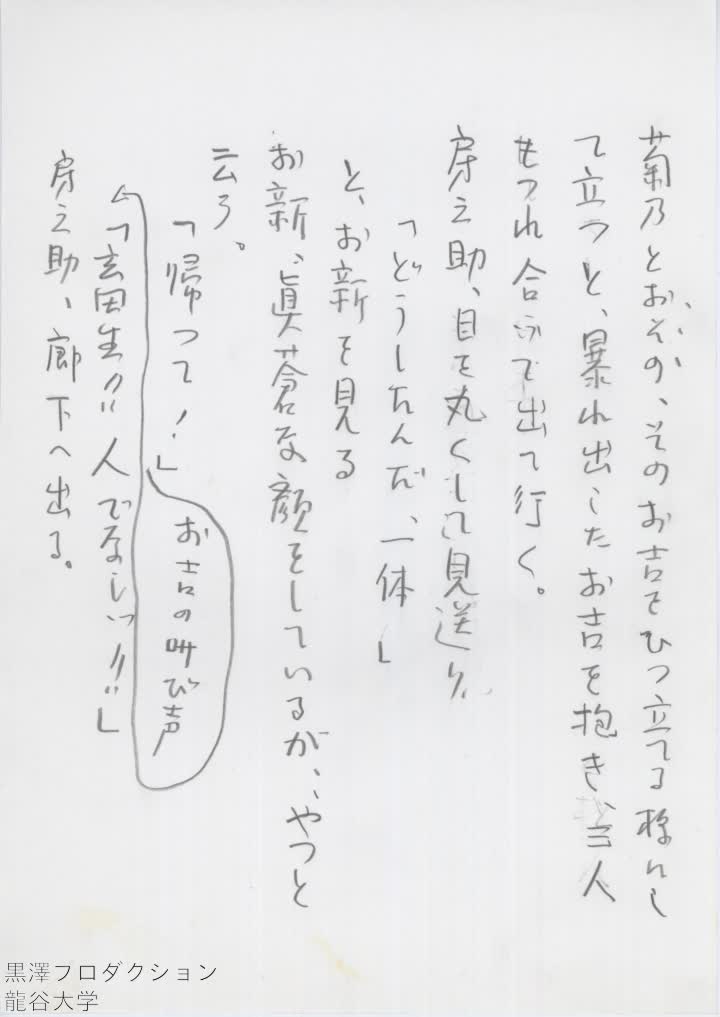 菊乃とおその、そのお吉をひつ立てる様にし
て立つと、暴れ出したお吉を抱き、三人
もつれ合つて出て行く。
房之助、目を丸くして見送り、
「どうしたんだ、一体」
と、お新を見る
お新、眞蒼な顔をしているが、やつと
云う。
「帰つて！」
お吉の叫び声
「畜生!! 人でなしッ!!」
房之助、廊下へ出る。
黒澤プロダクション
龍谷大学